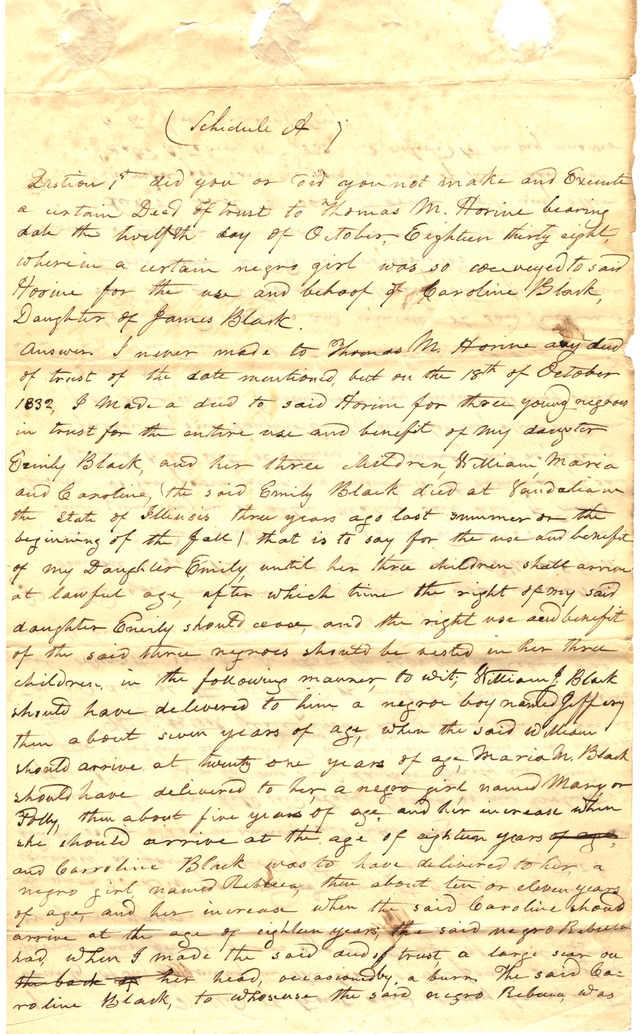 ( Schedule A )
Qestion 1st did you or did you not make and Execute
a certain Deed of trust to Thomas M. Horine bearing
date the twelfth day of October, Eighteen thirty eight,
wherein a certain negro girl was so conveyed to said
Horine for the use and behoof of Caroline Black,
Daughter of James Black.
Answer. I never made to Thomas M. Horine any deed
of trust of the date mentioned, but on the 18th of October
1832, I made a deed to said Horine for three young negroes
in trust for the entire use and benefit of my daughter
Emily Black, and her three children, William, Maria
and Caroline, (the said Emily Black died at Vandalia in
the State of Illinois three years ago last summer or the
beginning of the fall) that is to say for the use and benefit
of my Daughter Emily, until her three children shall arrive
at lawful age, after which time the right of my said
daughter Emily should cease, and the right use and benefit
of the said three negroes should be vested in her three
children, in the following manner, to wit; William J. Black
should have delivered to him a negroe boy named Jeffery
then about seven years of age, when the said William
should arrive at twenty one years of age, Maria M. Black
should have delivered to her, a negro girl named Mary or
Polly, then about five years of age, and her increase when
she should arrive at the age of eighteen years of age,
and Carroline Black was to have delivered to her, a
negro girl named Rebecca, then about ten or eleven years
of age and her increase when the said Caroline should
arrive at the age of eighteen years, the said negro Rebecca
had, when I made the said deed of trust, a large scar on
the back of her head, occasioned by a burn. The said Ca-
roline Black, to whose use the said negro Rebecca, was